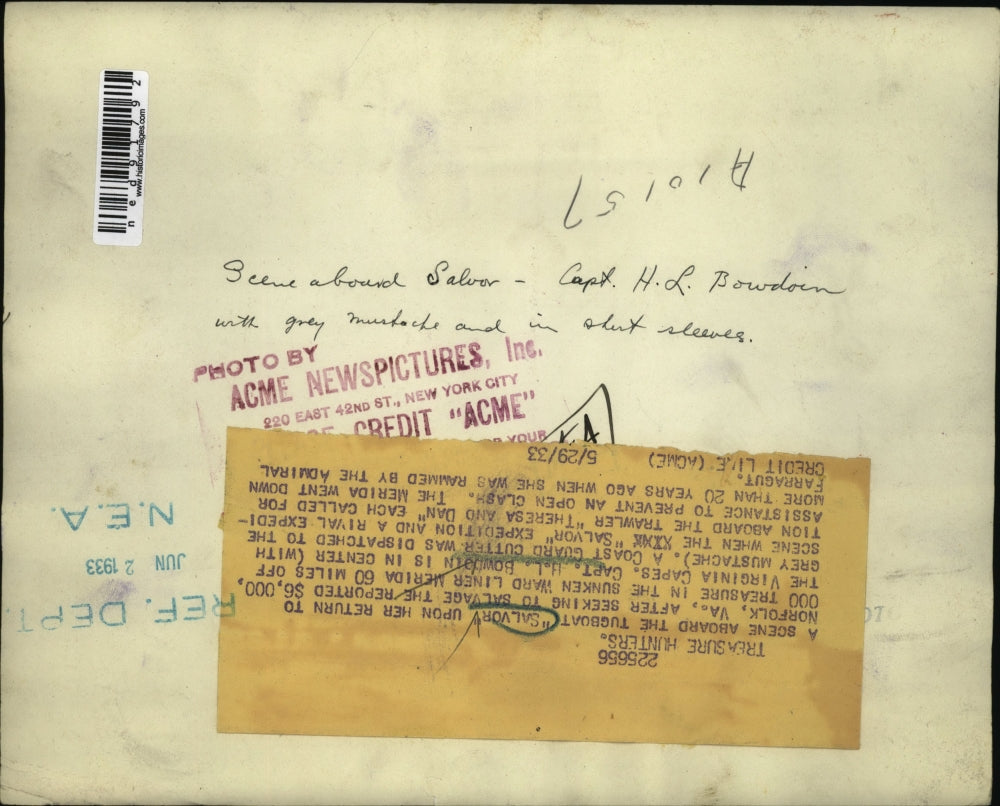 ned91792
www.historicimages.com
A10157
Scene aboard Salvor - Capt. H. L. Bowdoin
with grey mustache and in shirt sleeves.
PHOTO BY
ACME NEWSPICTURES, Inc.
220 EAST 42ND ST., NEW YORK CITY
CREDIT "ACME"
YOUR
225656
TREASURE HUNTERS.
A SCENE ABOARD THE TUGBOAT "SALVOR" UPON HER RETURN TO
NORFOLK, VA., AFTER SEEKING TO SALVAGE THE REPORTED $6,000,
000 TREASURE IN THE SUNKEN WARD LINER MERIDA 60 MILES OFF
THE VIRGINIA CAPES. CAPT. H.L. BOWDOIN IS IN CENTER (WITH
GREY MUSTACHE). A COAST GUARD CUTTER WAS DISPATCHED TO THE
SCENE WHEN THE XXXX "SALVOR" EXPEDITION AND A RIVAL EXPEDI-
TION ABOARD THE TRAWLER "THERESA AND DAN" EACH CALLED FOR
ASSISTANCE TO PREVENT AN OPEN CLASH. THE MERIDA WENT DOWN
MORE THAN 20 YEARS AGO WHEN SHE WAS RAMMED BY THE ADMIRAL
FARRAGUT.
CREDIT LINE (ACME) 5/29/33
REF. DEPT.
JUN 2 1933
N.E.A.